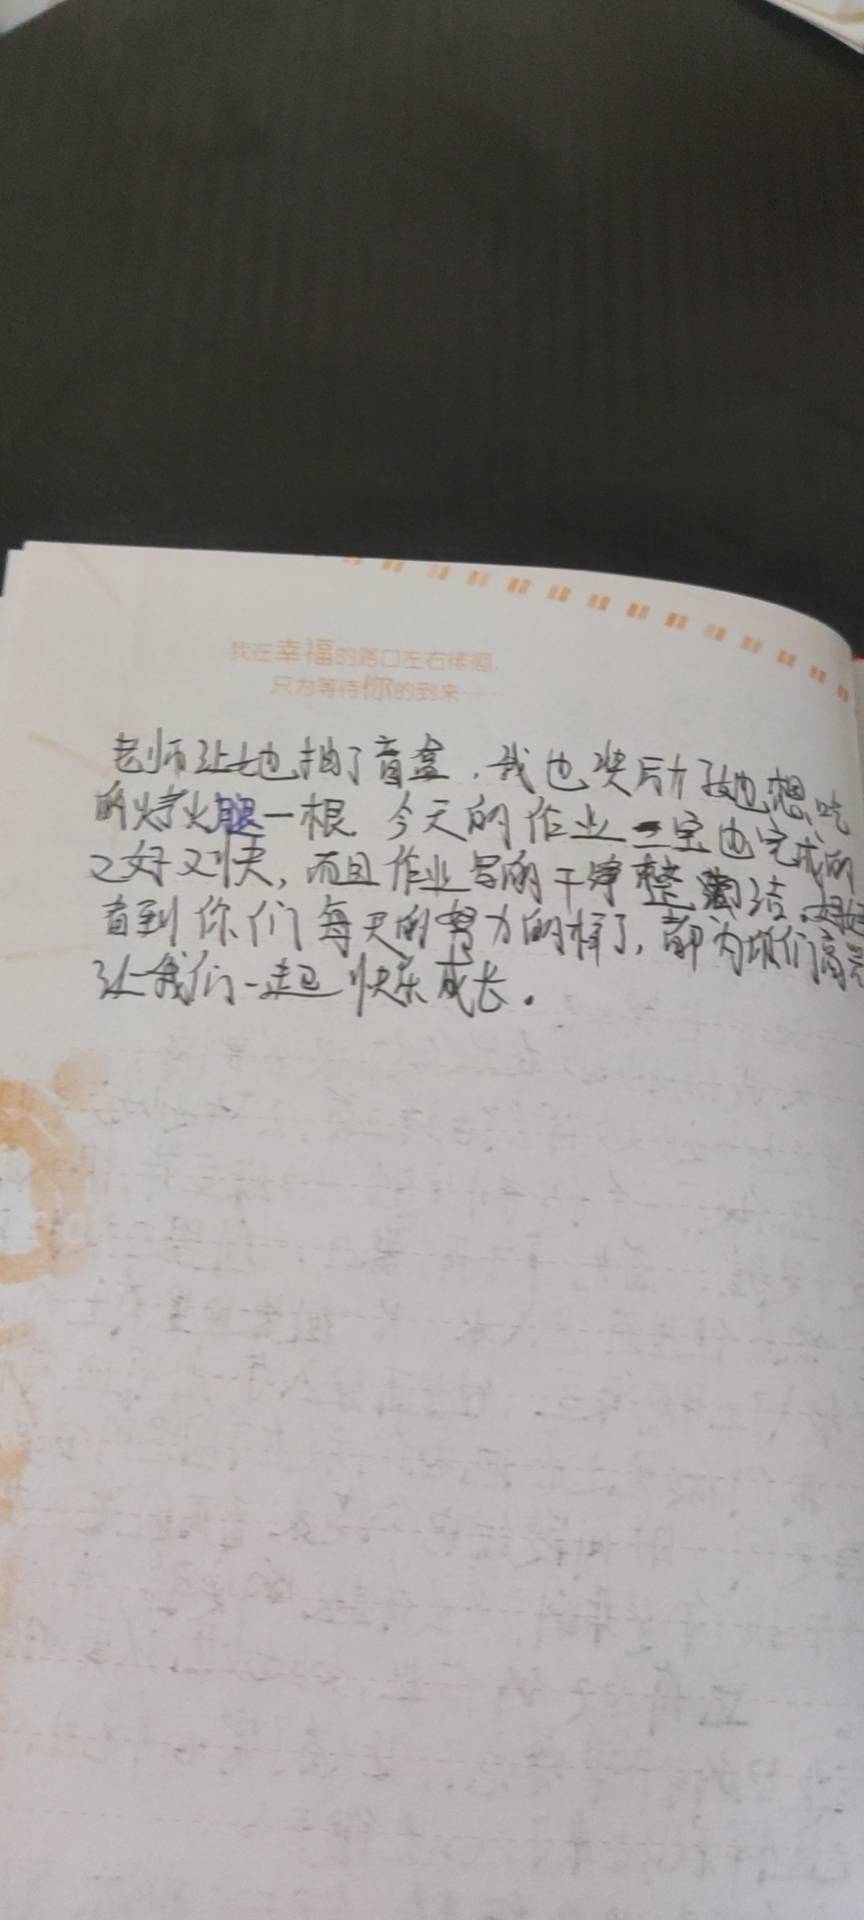 我在幸福的路口左右徘徊,
只为等待你的到来……
老师让她抽了盲盒,我也奖励了她想吃
的烤火腿一根 今天的作业二宝也完成的
又好又快,而且作业写的干净整洁。妈妈
看到你们每天的努力的样子,都为你们高兴
让我们一起快乐成长。